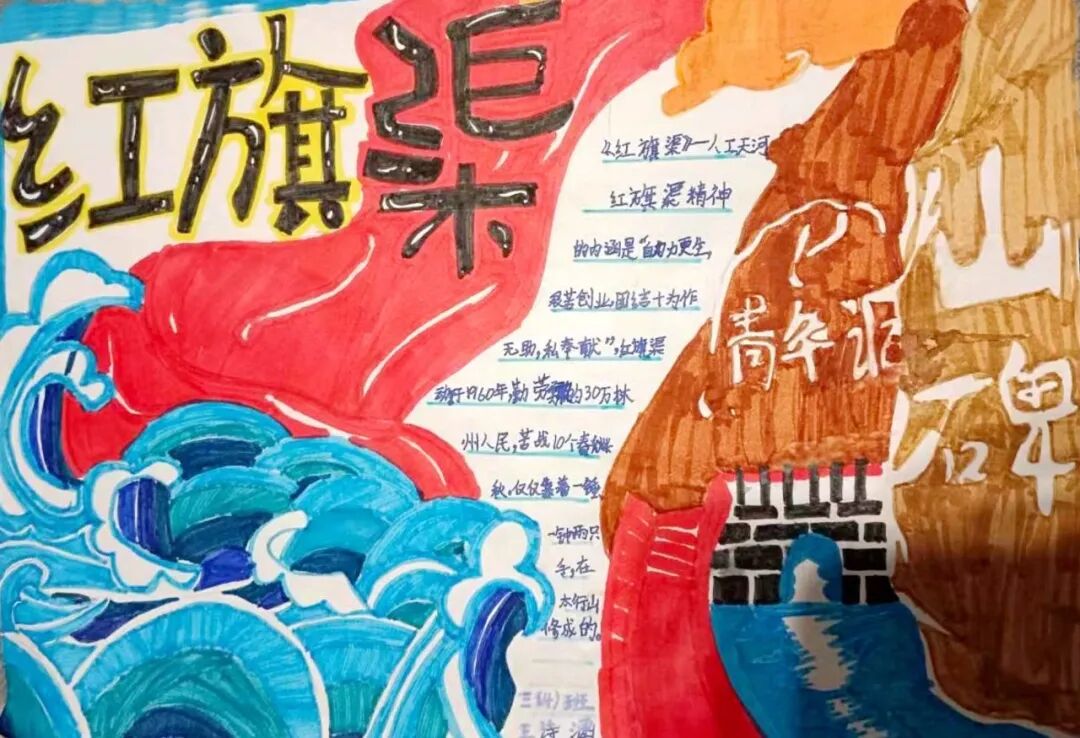 红旗渠
《红旗渠》一人工天河
红旗渠精神
的内涵是“自力更生,
艰苦创业,团结协作
无助,私奉献”,红旗渠
动于1960年,勤劳的30万林
州人民,苦战10个春秋
秋,仅仅靠着一锤
一钟两只
手,在
太行山
修成的。
三班
王诗涵
山
碑